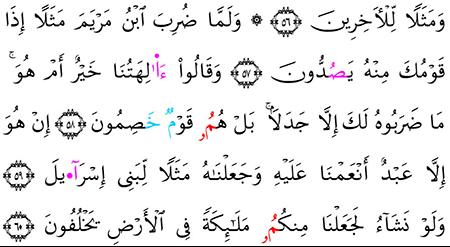 وَمَثَلًا لِّلْأَخِرِينَ ۝٥٦ ۞ وَلَمَّا ضُرِبَ ابْنُ مَرْيَمَ مَثَلًا إِذَا
قَوْمُكَ مِنْهُ يَصُدُّونَ ۝٥٧ وَقَالُواْ ءَا۬لِهَتُنَا خَيْرٌ أَمْ هُوَ ۚ
مَا ضَرَبُوهُ لَكَ إِلَّا جَدَلَا ۚ بَلْ هُمُۥ قَوْمٌ خَصِمُونَ ۝٥٨ إِنْ هُوَ
إِلَّا عَبْدٌ أَنْعَمْنَا عَلَيْهِ وَجَعَلْنَٰهُ مَثَلًا لِّبَنِي إِسْرَآ۬يلَ ۝٥٩
وَلَوْ نَشَآءُ لَجَعَلْنَا مِنكُمُۥ مَلَٰٓئِكَةً فِي الْأَرْضِ يَخْلُفُونَ ۝٦٠